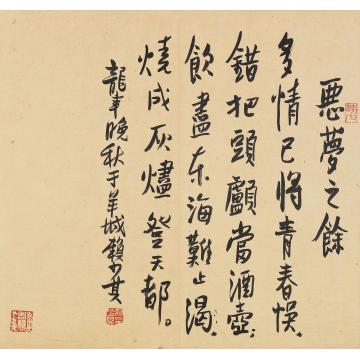 惡夢之餘
多情已將青春悞、
錯把頭顱當酒壺、
飲盡东海難止渴、
燒成灰燼登天都。
龍年晚秋于羊城賴少其